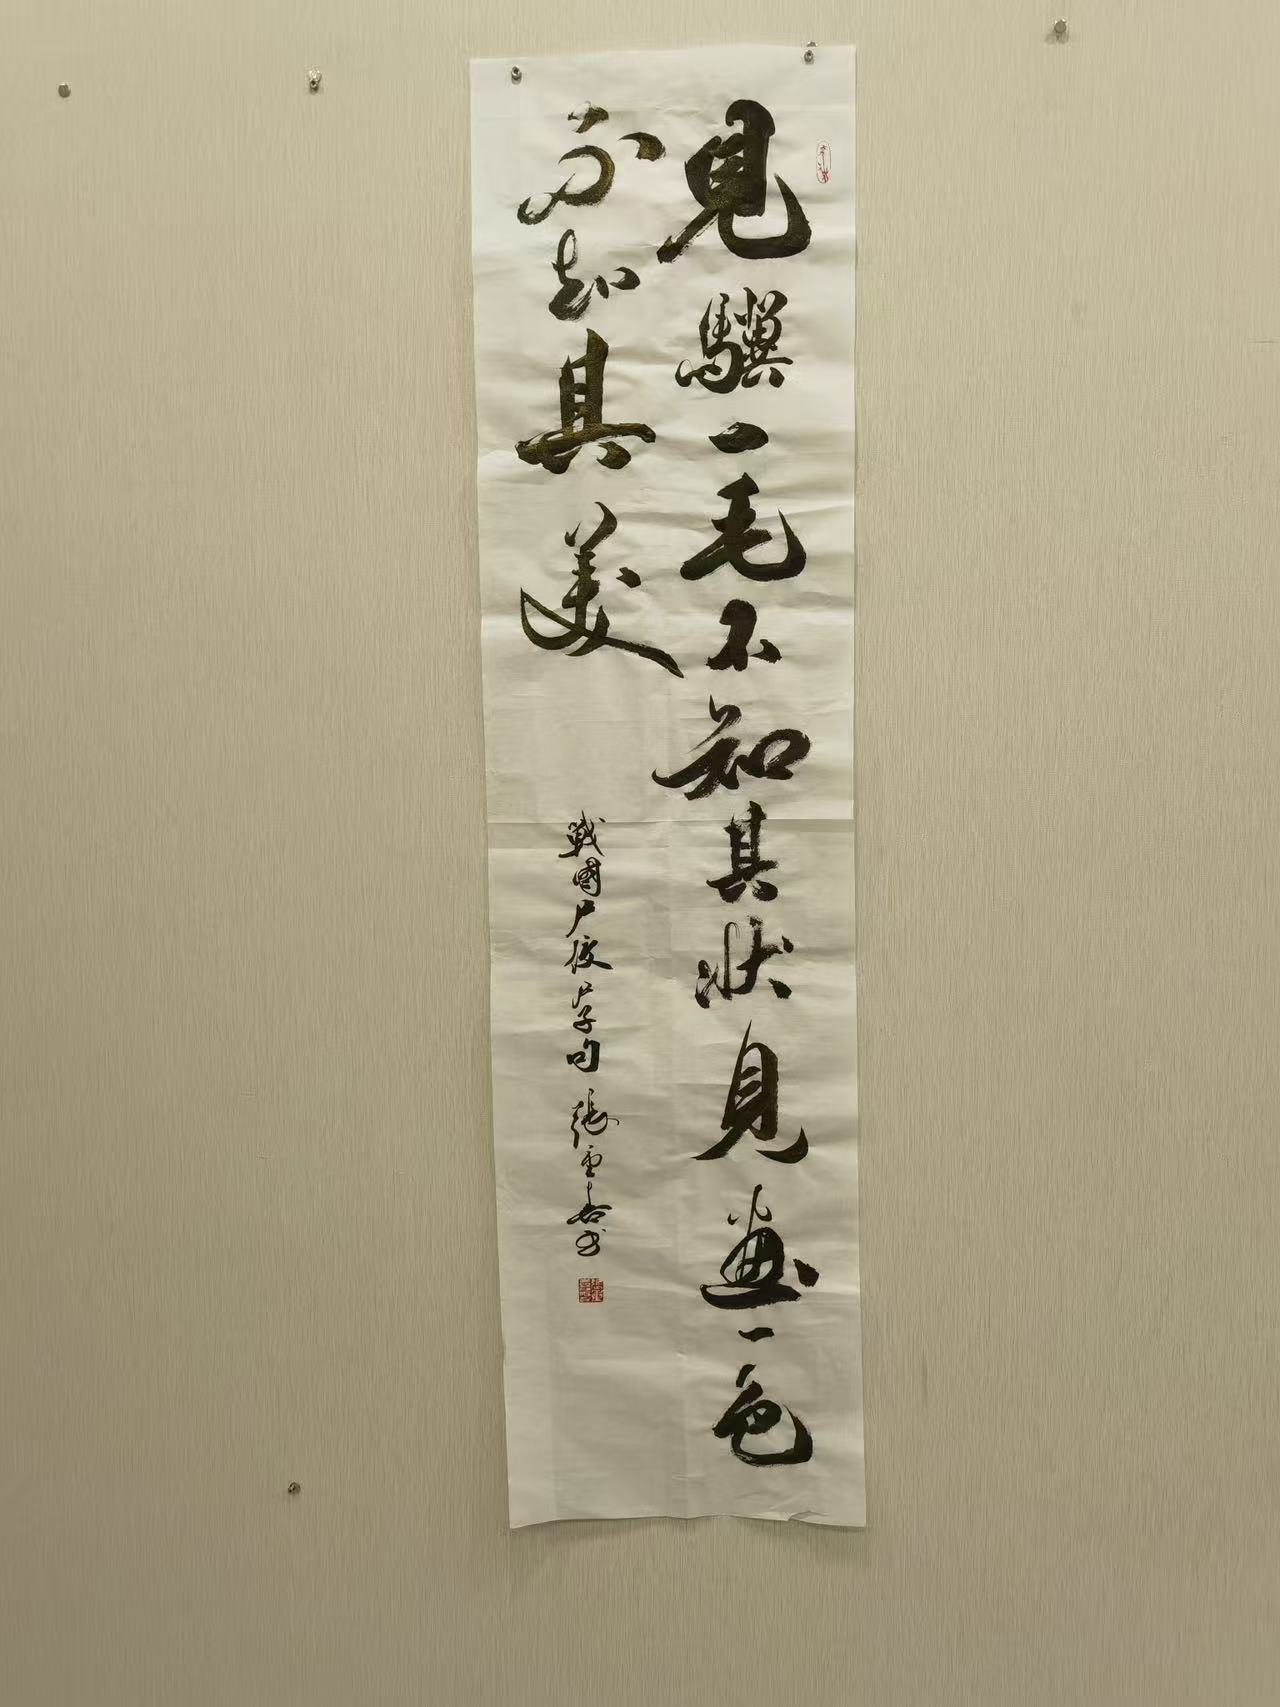 見驥一毛不知其狀見畫一色
不知其美
戰國尸佼尸子句 張重喜书